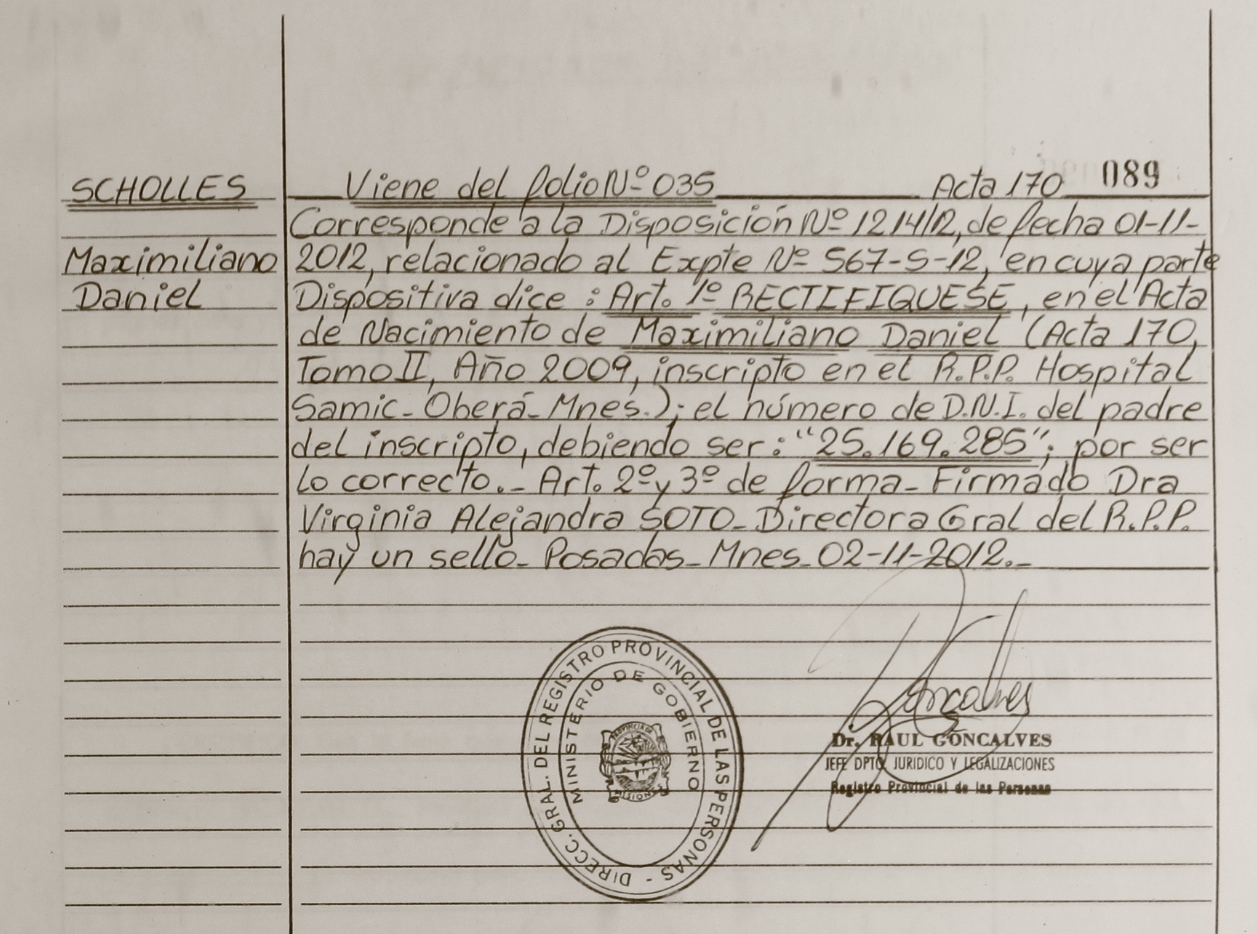 SCHOLLES
Maximiliano
Daniel
Viene del folio Nº 035 Acta 170 089
Corresponde a la Disposición Nº 1214/12, de fecha 01-11-
2012, relacionado al Expte Nº 567-S-12, en cuya parte
Dispositiva dice : Art. 1º RECTIFIQUESE, en el Acta
de Nacimiento de Maximiliano Daniel (Acta 170,
Tomo II, Año 2009, inscripto en el R.P.P. Hospital
Samic- Oberá- Mnes.); el número de D.N.I. del padre
del inscripto, debiendo ser: "25.169.285"; por ser
lo correcto.- Art. 2º y 3º de forma- Firmado Dra
Virginia Alejandra SOTO- Directora Gral del R.P.P.
hay un sello- Posadas- Mnes- 02-11-2012.-
DIRECC. GRAL. DEL REGISTRO PROVINCIAL DE LAS PERSONAS -
MINISTERIO DE GOBIERNO
Goncalves
Dr. RAUL GONCALVES
JEFE DPTO. JURIDICO Y LEGALIZACIONES
Registro Provincial de las Personas